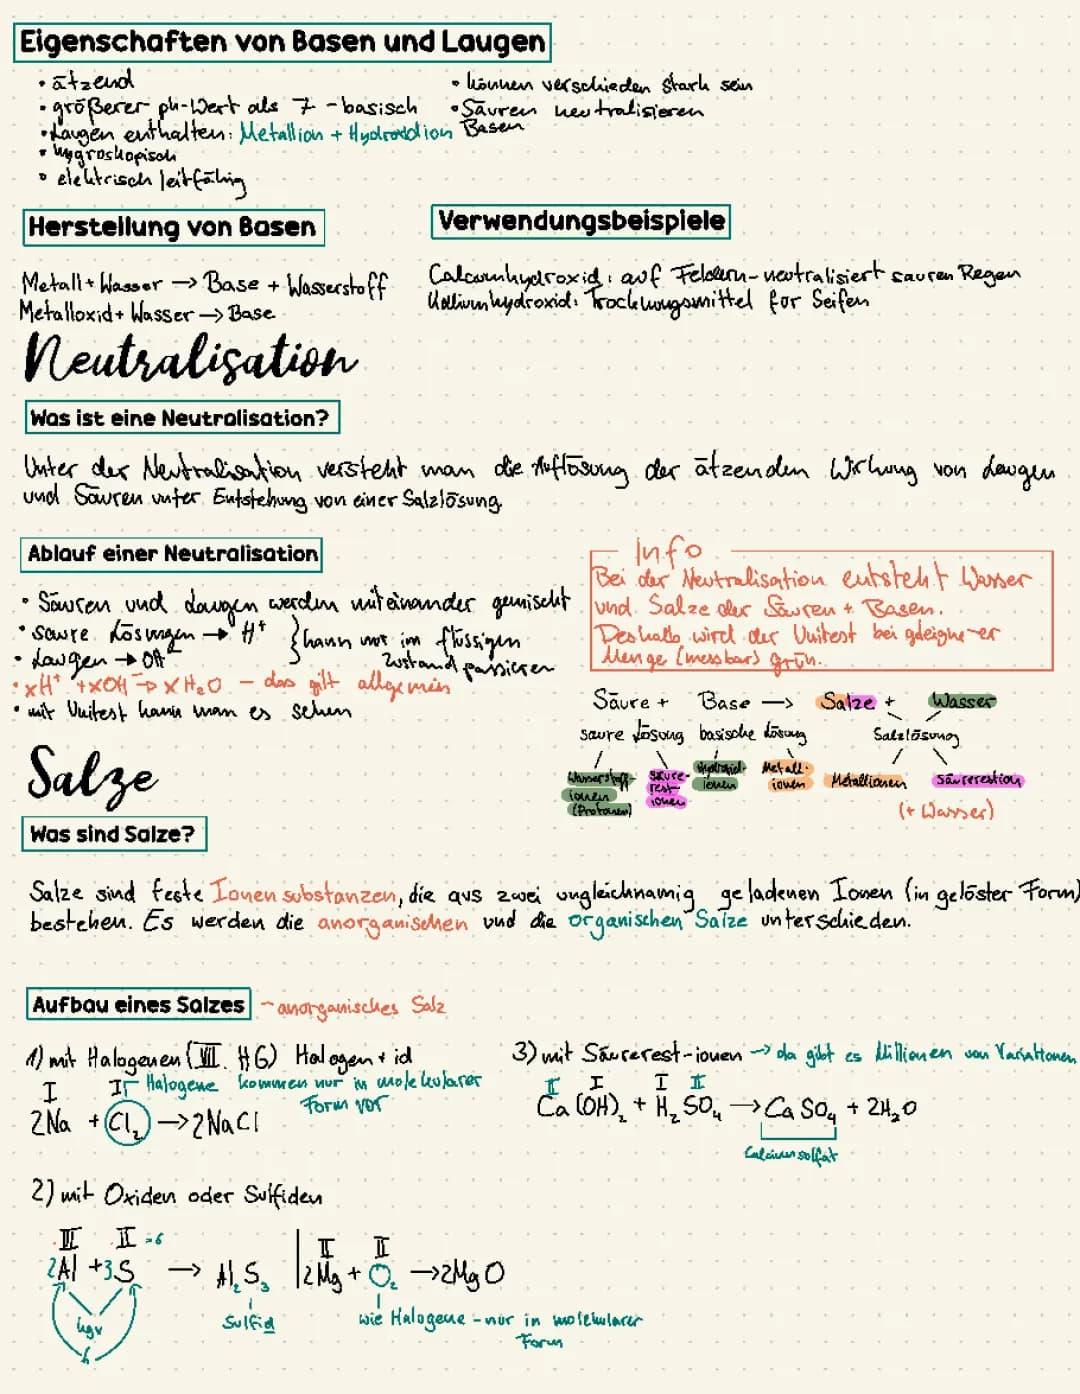 Eigenschaften von Basen und Laugen
• ätzend
• größerer ph-Wert als 7 - basisch
• Laugen enthalten: Metallion + Hydroxidion
• hygroskopisch
• elektrisch leitfähig
• können verschieden stark sein
• Säuren neutralisieren Basen
Herstellung von Basen
Metall + Wasser → Base + Wasserstoff
Metalloxid + Wasser → Base
Verwendungsbeispiele
Calciumhydroxid: auf Feldern - neutralisiert sauren Regen
Kaliumhydroxid: Trocknungsmittel für Seifen
Neutralisation
Was ist eine Neutralisation?
Unter der Neutralisation versteht man die Auflösung der ätzenden Wirkung von Laugen
und Säuren unter Entstehung von einer Salzlösung.
Ablauf einer Neutralisation
• Säuren und Laugen werden miteinander gemischt
• saure Lösungen → H⁺
• Laugen → OH⁻
} kann nur im flüssigen
Zustand passieren
• xH⁺ + xOH⁻ → xH₂O - das gilt allgemein
• mit Unitest kann man es sehen
Info
Bei der Neutralisation entsteht Wasser
und Salze der Säuren + Basen.
Deshalb wird der Unitest bei gleicher
Menge (messbar) grün.
Säure + Base → Salze + Wasser
saure Lösung basische Lösung Salzlösung
Wasserstoff-ionen (Protonen) Säure-rest-ionen Hydroxid-ionen Metall-ionen Metallionen Säurerestion
(+ Wasser)
Salze
Was sind Salze?
Salze sind feste Ionensubstanzen, die aus zwei ungleichnamig geladenen Ionen (in gelöster Form)
bestehen. Es werden die anorganischen und die organischen Salze unterschieden.
Aufbau eines Salzes - anorganisches Salz
1) mit Halogenen (VII. HG) Halogen + id
I I Halogene kommen nur in molekularer
Form vor
2Na + Cl₂ → 2NaCl
2) mit Oxiden oder Sulfiden
III II = 6
2Al + 3S → Al₂S₃
kgv
6
Sulfid
II II
2Mg + O₂ → 2MgO
wie Halogene - nur in molekularer
Form
3) mit Säurerest-ionen → da gibt es Millionen von Variationen
II I I II
Ca(OH)₂ + H₂SO₄ → CaSO₄ + 2H₂O
Calciumsulfat